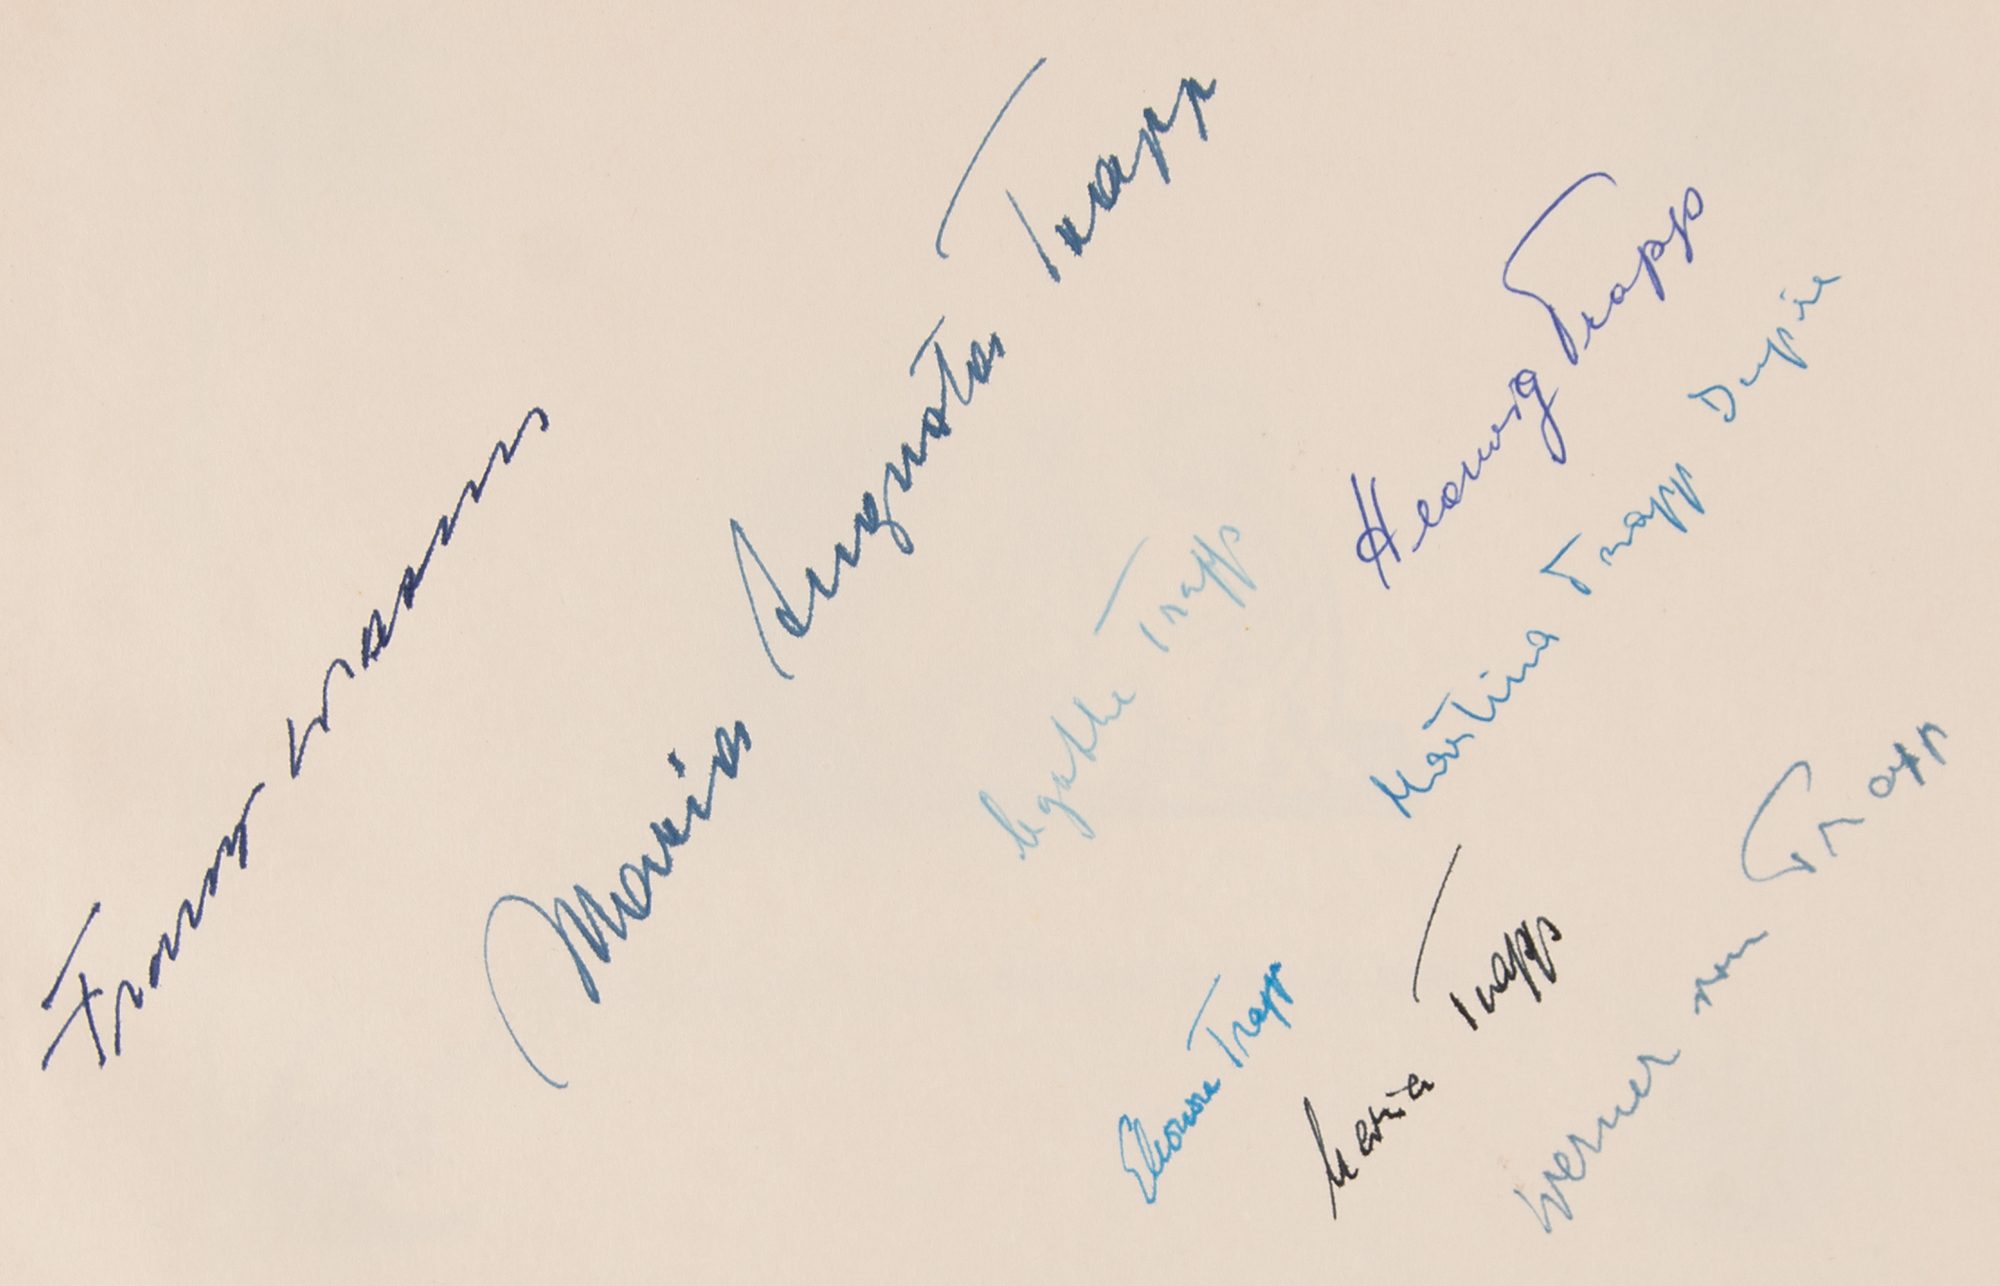 Franz Wasner
Maria Augusta Trapp
Agathe Trapp
Hedwig Trapp
Martina Trapp Dupire
Eleonore Trapp
Maria Trapp
Werner von Trapp